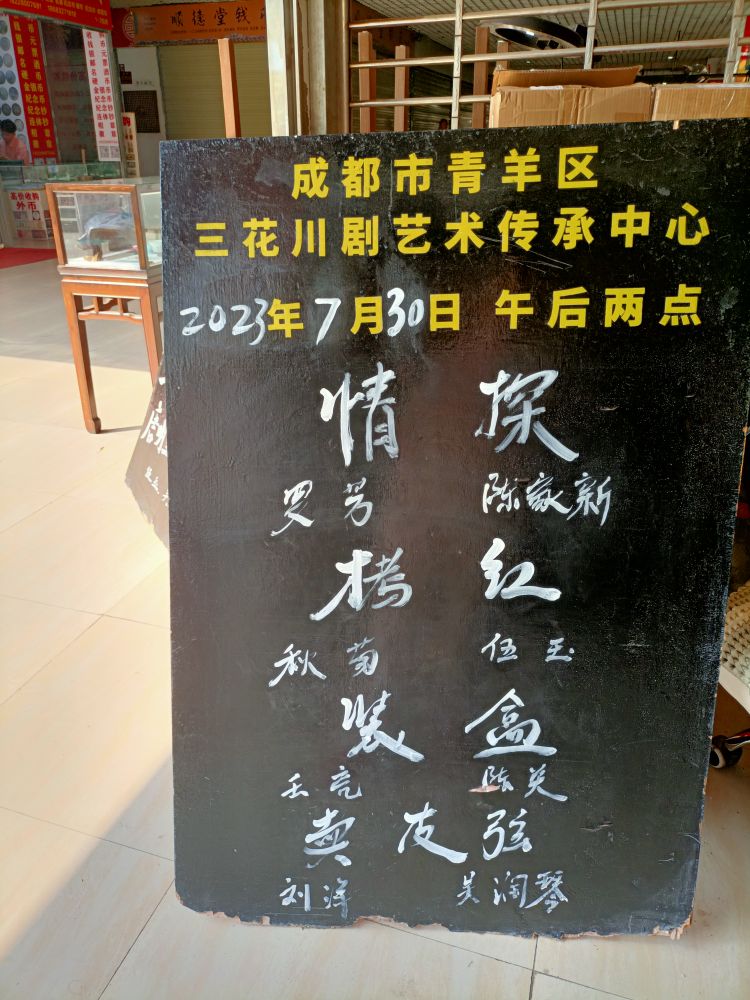 顺德堂钱
高价收购
外币
成都市青羊区
三花川剧艺术传承中心
2023年7月30日 午后两点
情 探
罗芳 陈家新
拷 红
秋菊 伍玉
装 盒
王亮 陈英
卖皮弦
刘洋 吴润琴